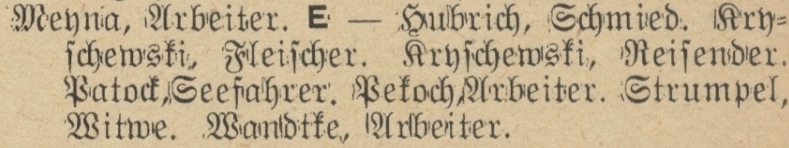 Meyna, Arbeiter. E — Hubrich, Schmied. Kry-
schewski, Fleischer. Kryschewski, Reisender.
Patock, Seefahrer. Pekoch, Arbeiter. Strumpel,
Witwe. Wandtke, Arbeiter.